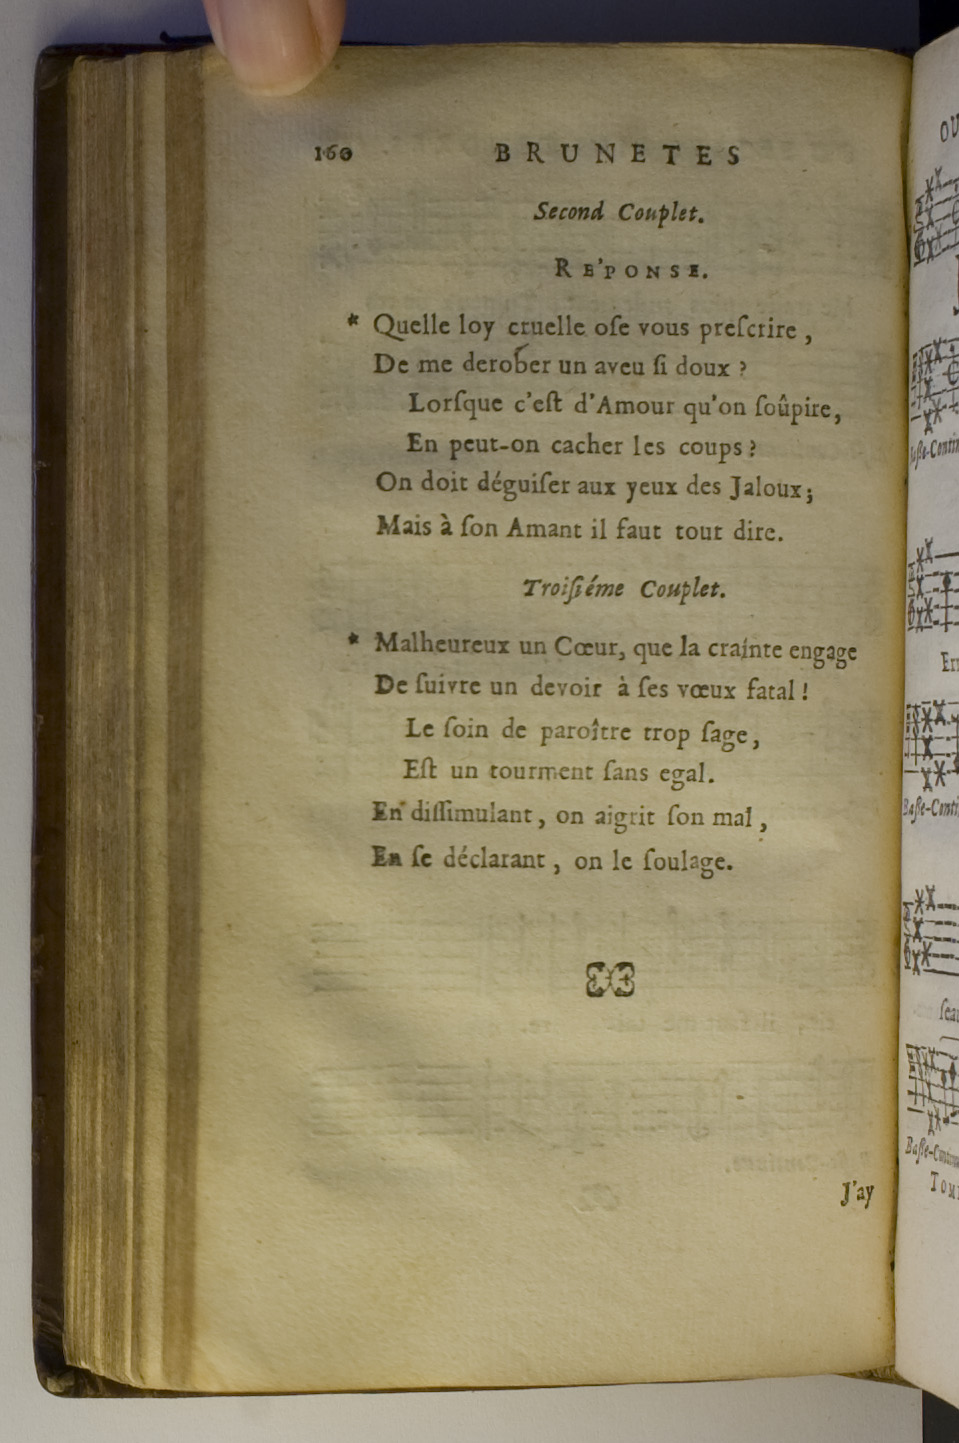 160 BRUNETES
Second Couplet.
RE'PONSE.
* Quelle loy cruelle oſe vous preſcrire,
De me derober un aveu ſi doux ?
Lorſque c'eſt d'Amour qu'on ſoûpire,
En peut-on cacher les coups ?
On doit déguiſer aux yeux des Jaloux ;
Mais à ſon Amant il faut tout dire.
Troiſiéme Couplet.
* Malheureux un Cœur, que la crainte engage
De ſuivre un devoir à ſes vœux fatal !
Le ſoin de paroître trop ſage,
Eſt un tourment ſans egal.
En diſſimulant, on aigrit ſon mal,
En ſe déclarant, on le ſoulage.
J'ay
OU
Baſſe-Conti
Er
Baſſe-Conti
ſea
Baſſe-Continu
TOM